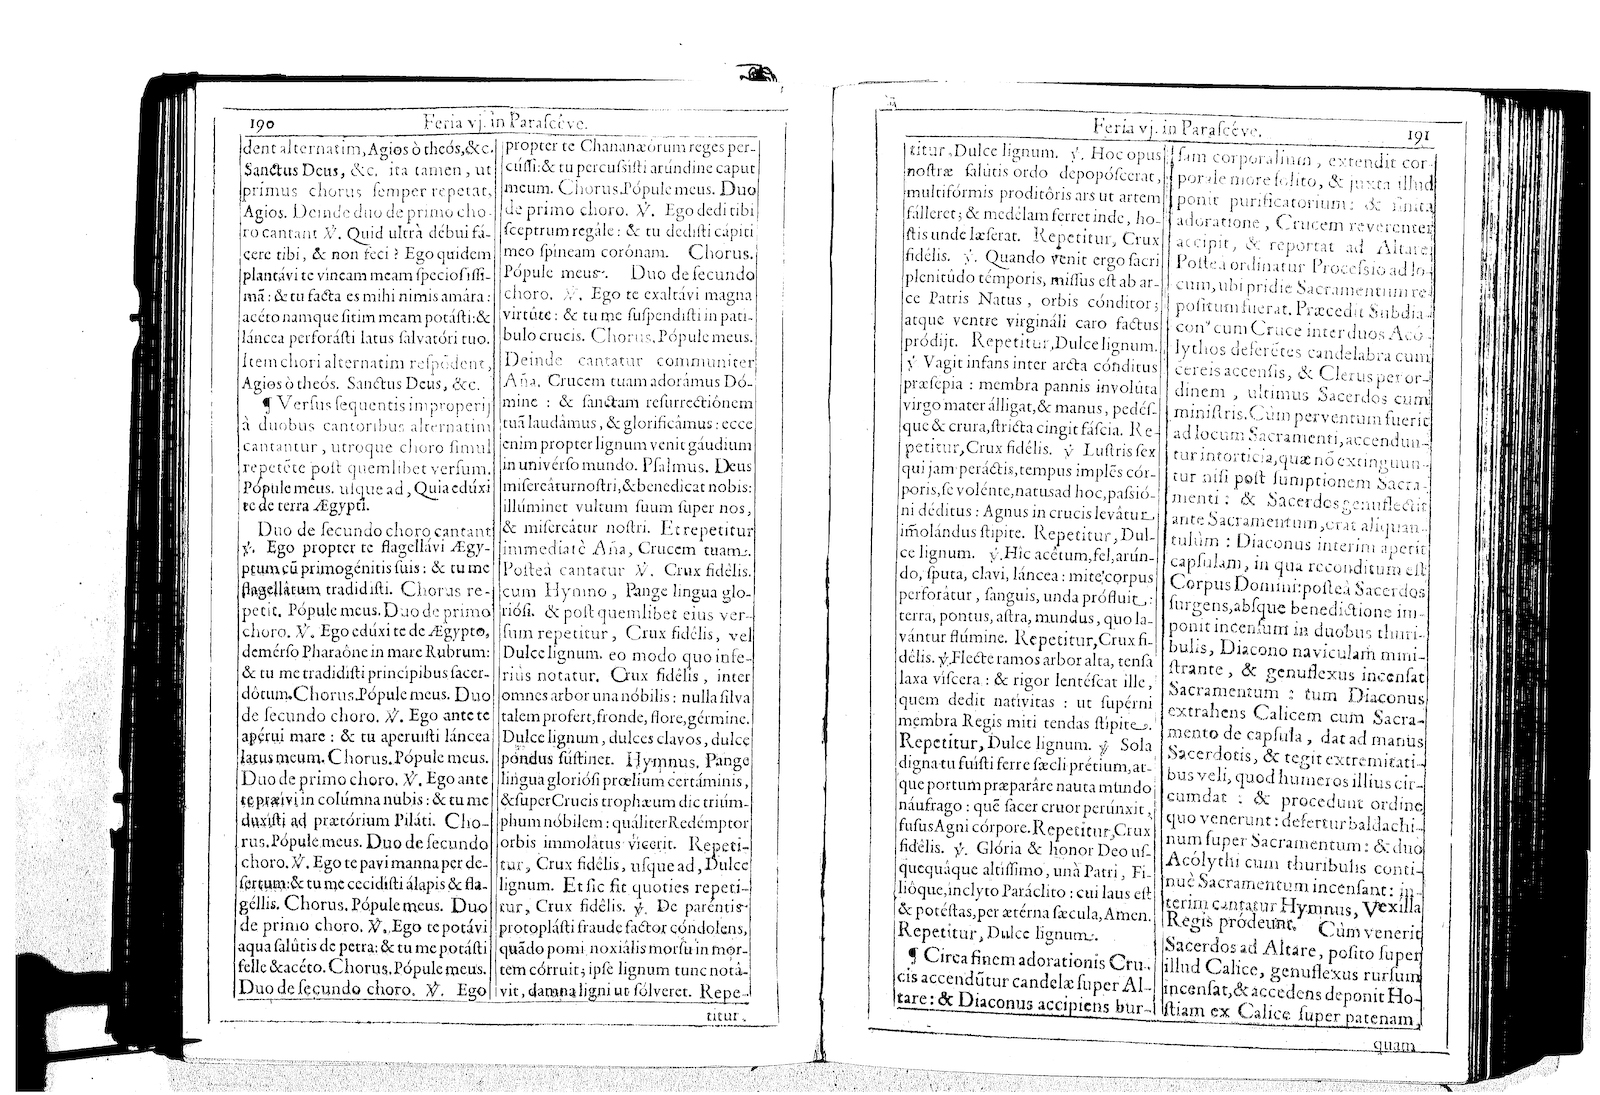 190
Feria vj. in Paraſcéve.
dent alternatim, Agios ò theós, &c.
Sanctus Deus, &c. ita tamen, ut
primus chorus ſemper repetat,
Agios. Deinde duo de primo cho-
ro cantant ℣. Quid ultrà débui fá-
cere tibi, & non feci? Ego quidem
plantávi te vineam meam ſpecioſiſſi-
mã: & tu facta es mihi nimis amára:
acéto namque ſitim meam potáſti: &
láncea perforáſti latus ſalvatóri tuo.
Item chori alternatim reſpõdent,
Agios ò theós. Sanctus Deus, &c.
¶ Verſus ſequentis improperij
à duobus cantoribus alternatim
cantantur, utroque choro ſimul
repetẽte poſt quemlibet verſum.
Pópule meus. uſque ad, Quia edúxi
te de terra Ægypti.
Duo de ſecundo choro cantant
℣. Ego propter te flagellávi Ægy-
ptum cũ primogénitis ſuis: & tu me
flagellátum tradidiſti. Chorus re-
petit, Pópule meus. Duo de primo
choro. ℣. Ego edúxi te de Ægypto,
demérſo Pharaóne in mare Rubrum:
& tu me tradidiſti principibus ſacer-
dótum. Chorus. Pópule meus. Duo
de ſecundo choro. ℣. Ego ante te
apérui mare: & tu aperuiſti láncea
latus meum. Chorus. Pópule meus.
Duo de primo choro. ℣. Ego ante
te præívi in colúmna nubis: & tu me
duxiſti ad prætórium Piláti. Cho-
rus. Pópule meus. Duo de ſecundo
choro. ℣. Ego te pavi manna per de-
ſertum: & tu me cecidiſti álapis & fla-
géllis. Chorus. Pópule meus. Duo
de primo choro. ℣. Ego te potávi
aqua ſalútis de petra: & tu me potáſti
felle & acéto. Chorus. Pópule meus.
Duo de ſecundo choro. ℣. Ego
propter te Chananæórum reges per-
cúſſi: & tu percuſsiſti arúndine caput
meum. Chorus. Pópule meus. Duo
de primo choro. ℣. Ego dedi tibi
ſceptrum regále: & tu dediſti cápiti
meo ſpineam corónam. Chorus.
Pópule meus. Duo de ſecundo
choro. ℣. Ego te exaltávi magna
virtúte: & tu me ſuſpendiſti in pati-
bulo crucis. Chorus. Pópule meus.
Deinde cantatur communiter
Añа. Crucem tuam adorámus Dó-
mine: & ſanctam reſurrectiónem
tuã laudámus, & glorificámus: ecce
enim propter lignum venit gáudium
in univérſo mundo. Pſalmus. Deus
miſereátur noſtri, & benedicat nobis:
illúminet vultum ſuum ſuper nos,
& miſereátur noſtri. Et repetitur
immediatè Aña, Crucem tuam.
Poſteà cantatur ℣. Crux fidélis.
cum Hymno, Pange lingua glo-
rióſi. & poſt quemlibet eius ver-
ſum repetitur, Crux fidélis, vel
Dulce lignum. eo modo quo infe-
riùs notatur. Crux fidélis, inter
omnes arbor una nóbilis: nulla ſilva
talem profert, fronde, flore, gérmine.
Dulce lignum, dulces clavos, dulce
pondus ſúſtinet. Hymnus. Pange
lingua glorióſi prœlium certáminis,
& ſuper Crucis trophæum dic triúm-
phum nóbilem: quáliter Redémptor
orbis immolátus vicerit. Repeti-
tur, Crux fidélis, uſque ad, Dulce
lignum. Et ſic fit quoties repeti-
tur, Crux fidélis. ℣. De paréntis
protopláſti fraude factor cóndolens,
quãdo pomi noxiális morſu in mor-
tem córruit; ipſe lignum tunc notá-
vit, damna ligni ut ſólveret. Repe-
titur,
Feria vj. in Paraſcéve.
191
titur, Dulce lignum. ℣. Hoc opus
noſtræ ſalútis ordo depopóſcerat,
multifórmis proditóris ars ut artem
fálleret; & medélam ferret inde, ho-
ſtis unde læſerat. Repetitur, Crux
fidélis. ℣. Quando venit ergo ſacri
plenitúdo témporis, miſſus eſt ab ar-
ce Patris Natus, orbis cónditor;
atque ventre virgináli caro factus
pródijt. Repetitur, Dulce lignum.
℣ Vagit infans inter arcta cónditus
præſépia: membra pannis involúta
virgo mater álligat, & manus, pedéſ-
que & crura, ſtricta cingit fáſcia. Re-
petitur, Crux fidélis. ℣ Luſtris ſex
qui jam peráctis, tempus implẽs cór-
poris, ſe volénte, natus ad hoc, paſſió-
ni déditus: Agnus in crucis levátur
im̃olándus ſtipite. Repetitur, Dul-
ce lignum. ℣. Hic acétum, fel, arún-
do, ſputa, clavi, láncea: mite corpus
perforátur, ſanguis, unda prófluit:
terra, pontus, aſtra, mundus, quo la-
vántur flúmine. Repetitur, Crux fi-
délis. ℣. Flecte ramos arbor alta, tenſa
laxa viſcera: & rigor lentéſcat ille,
quem dedit nativitas: ut ſupérni
membra Regis miti tendas ſtipite.
Repetitur, Dulce lignum. ℣ Sola
digna tu fuiſti ferre ſæcli prétium, at-
que portum præparáre nauta mundo
náufrago: quẽ ſacer cruor perúnxit,
fuſus Agni córpore. Repetitur, Crux
fidélis. ℣. Glória & honor Deo uſ-
quequáque altiſſimo, unà Patri, Fi-
lióque, inclyto Paráclito: cui laus eſt
& potéſtas, per ætérna ſæcula, Amen.
Repetitur, Dulce lignum.
¶ Circa finem adorationis Cru-
cis accendũtur candelæ ſuper Al-
tare: & Diaconus accipiens bur-
ſam corporalium, extendit cor-
porale more ſolito, & juxta illud
ponit purificatorium: & finita
adoratione, Crucem reverenter
accipit, & reportat ad Altare.
Poſtea ordinatur Proceſsio ad lo-
cum, ubi pridie Sacramentum re-
poſitum fuerat. Præcedit Subdia-
con⁹ cum Cruce inter duos Acó-
lythos deferẽtes candelabra cum
cereis accenſis, & Clerus per or-
dinem, ultimus Sacerdos cum
miniſtris. Cùm perventum fuerit
ad locum Sacramenti, accendun-
tur intorticia, quæ nõ extinguun-
tur niſi poſt ſumptionem Sacra-
menti: & Sacerdos genuflectit
ante Sacramentum, orat aliquan-
tulùm: Diaconus interim aperit
capſulam, in qua reconditum eſt
Corpus Domini: poſteà Sacerdos
ſurgens, abſque benedictione im-
ponit incenſum in duobus thuri-
bulis, Diacono naviculam mini-
ſtrante, & genuflexus incenſat
Sacramentum: tum Diaconus
extrahens Calicem cum Sacra-
mento de capſula, dat ad manus
Sacerdotis, & tegit extremitati-
bus veli, quod humeros illius cir-
cumdat: & procedunt ordine
quo venerunt: defertur baldachi-
num ſuper Sacramentum: & duo
Acólythi cum thuribulis conti-
nuè Sacramentum incenſant: in-
terim cantatur Hymnus, Vexilla
Regis pródeunt. Cùm venerit
Sacerdos ad Altare, poſito ſuper
illud Calice, genuflexus rurſum
incenſat, & accedens deponit Ho-
ſtiam ex Calice ſuper patenam,
quam